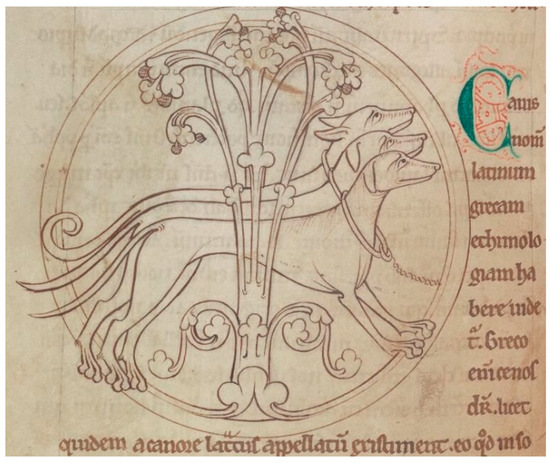 Canis
nom̄
latinum
grecam
ethimolo
giam ha
bere uide
t̄. Greco
eni̅ cenos
dr̄. licet
quidem a canore lat̄tus appellatū existiment. eo qđ in so